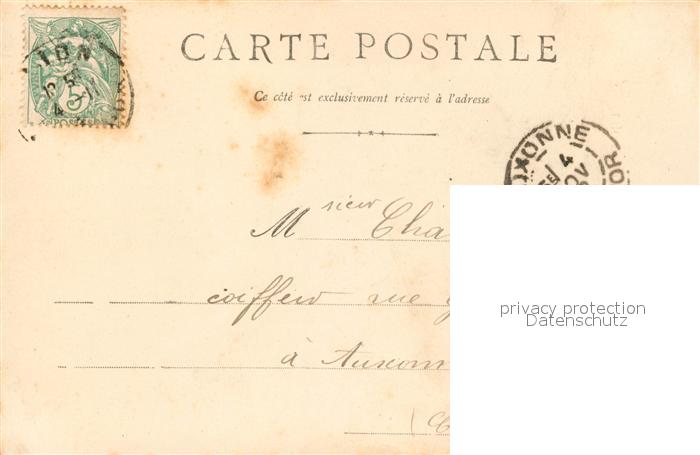 CARTE POSTALE
Ce côté est exclusivement réservé à l'adresse
5
POSTES
XONNE
4
OR
Msieur Cha
coiffeur rue
à Auxonn
privacy protection
Datenschutz